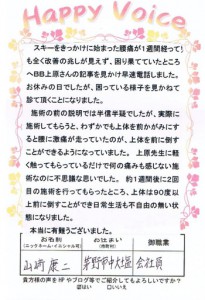 Happy Voice
スキーをきっかけに始まった腰痛が1週間経っても
全く改善の兆しが見えず、困り果てていたところ
へBB上原さんの記事を見かけ早速電話しました。
お休みの日でしたが、困っている様子を見かねて
診て頂くことになりました。
施術の前の説明では半信半疑でしたが、実際に
施術してもらうと、わずかでも上体を前かがみにす
ると腰に激痛が走っていたのが、上体を前に倒す
ことができるようになっていました。上原先生に軽
く触ってもらっているだけで何の痛みも感じない施
術なのに不思議に思いでした。約1週間後に2回
目の施術を行ってもらったところ、上体は90度以
上前に倒すことができ日常生活も不自由の無い状
態になりました。
本当に有難うございました。
お名前
(ニックネーム・イニシャル可)
お住まい
御職業
山崎 康二
茅野市中大塩
会社員
貴方様の声を HP やブログ等でご紹介してもよろしいですか？
はい
いいえ